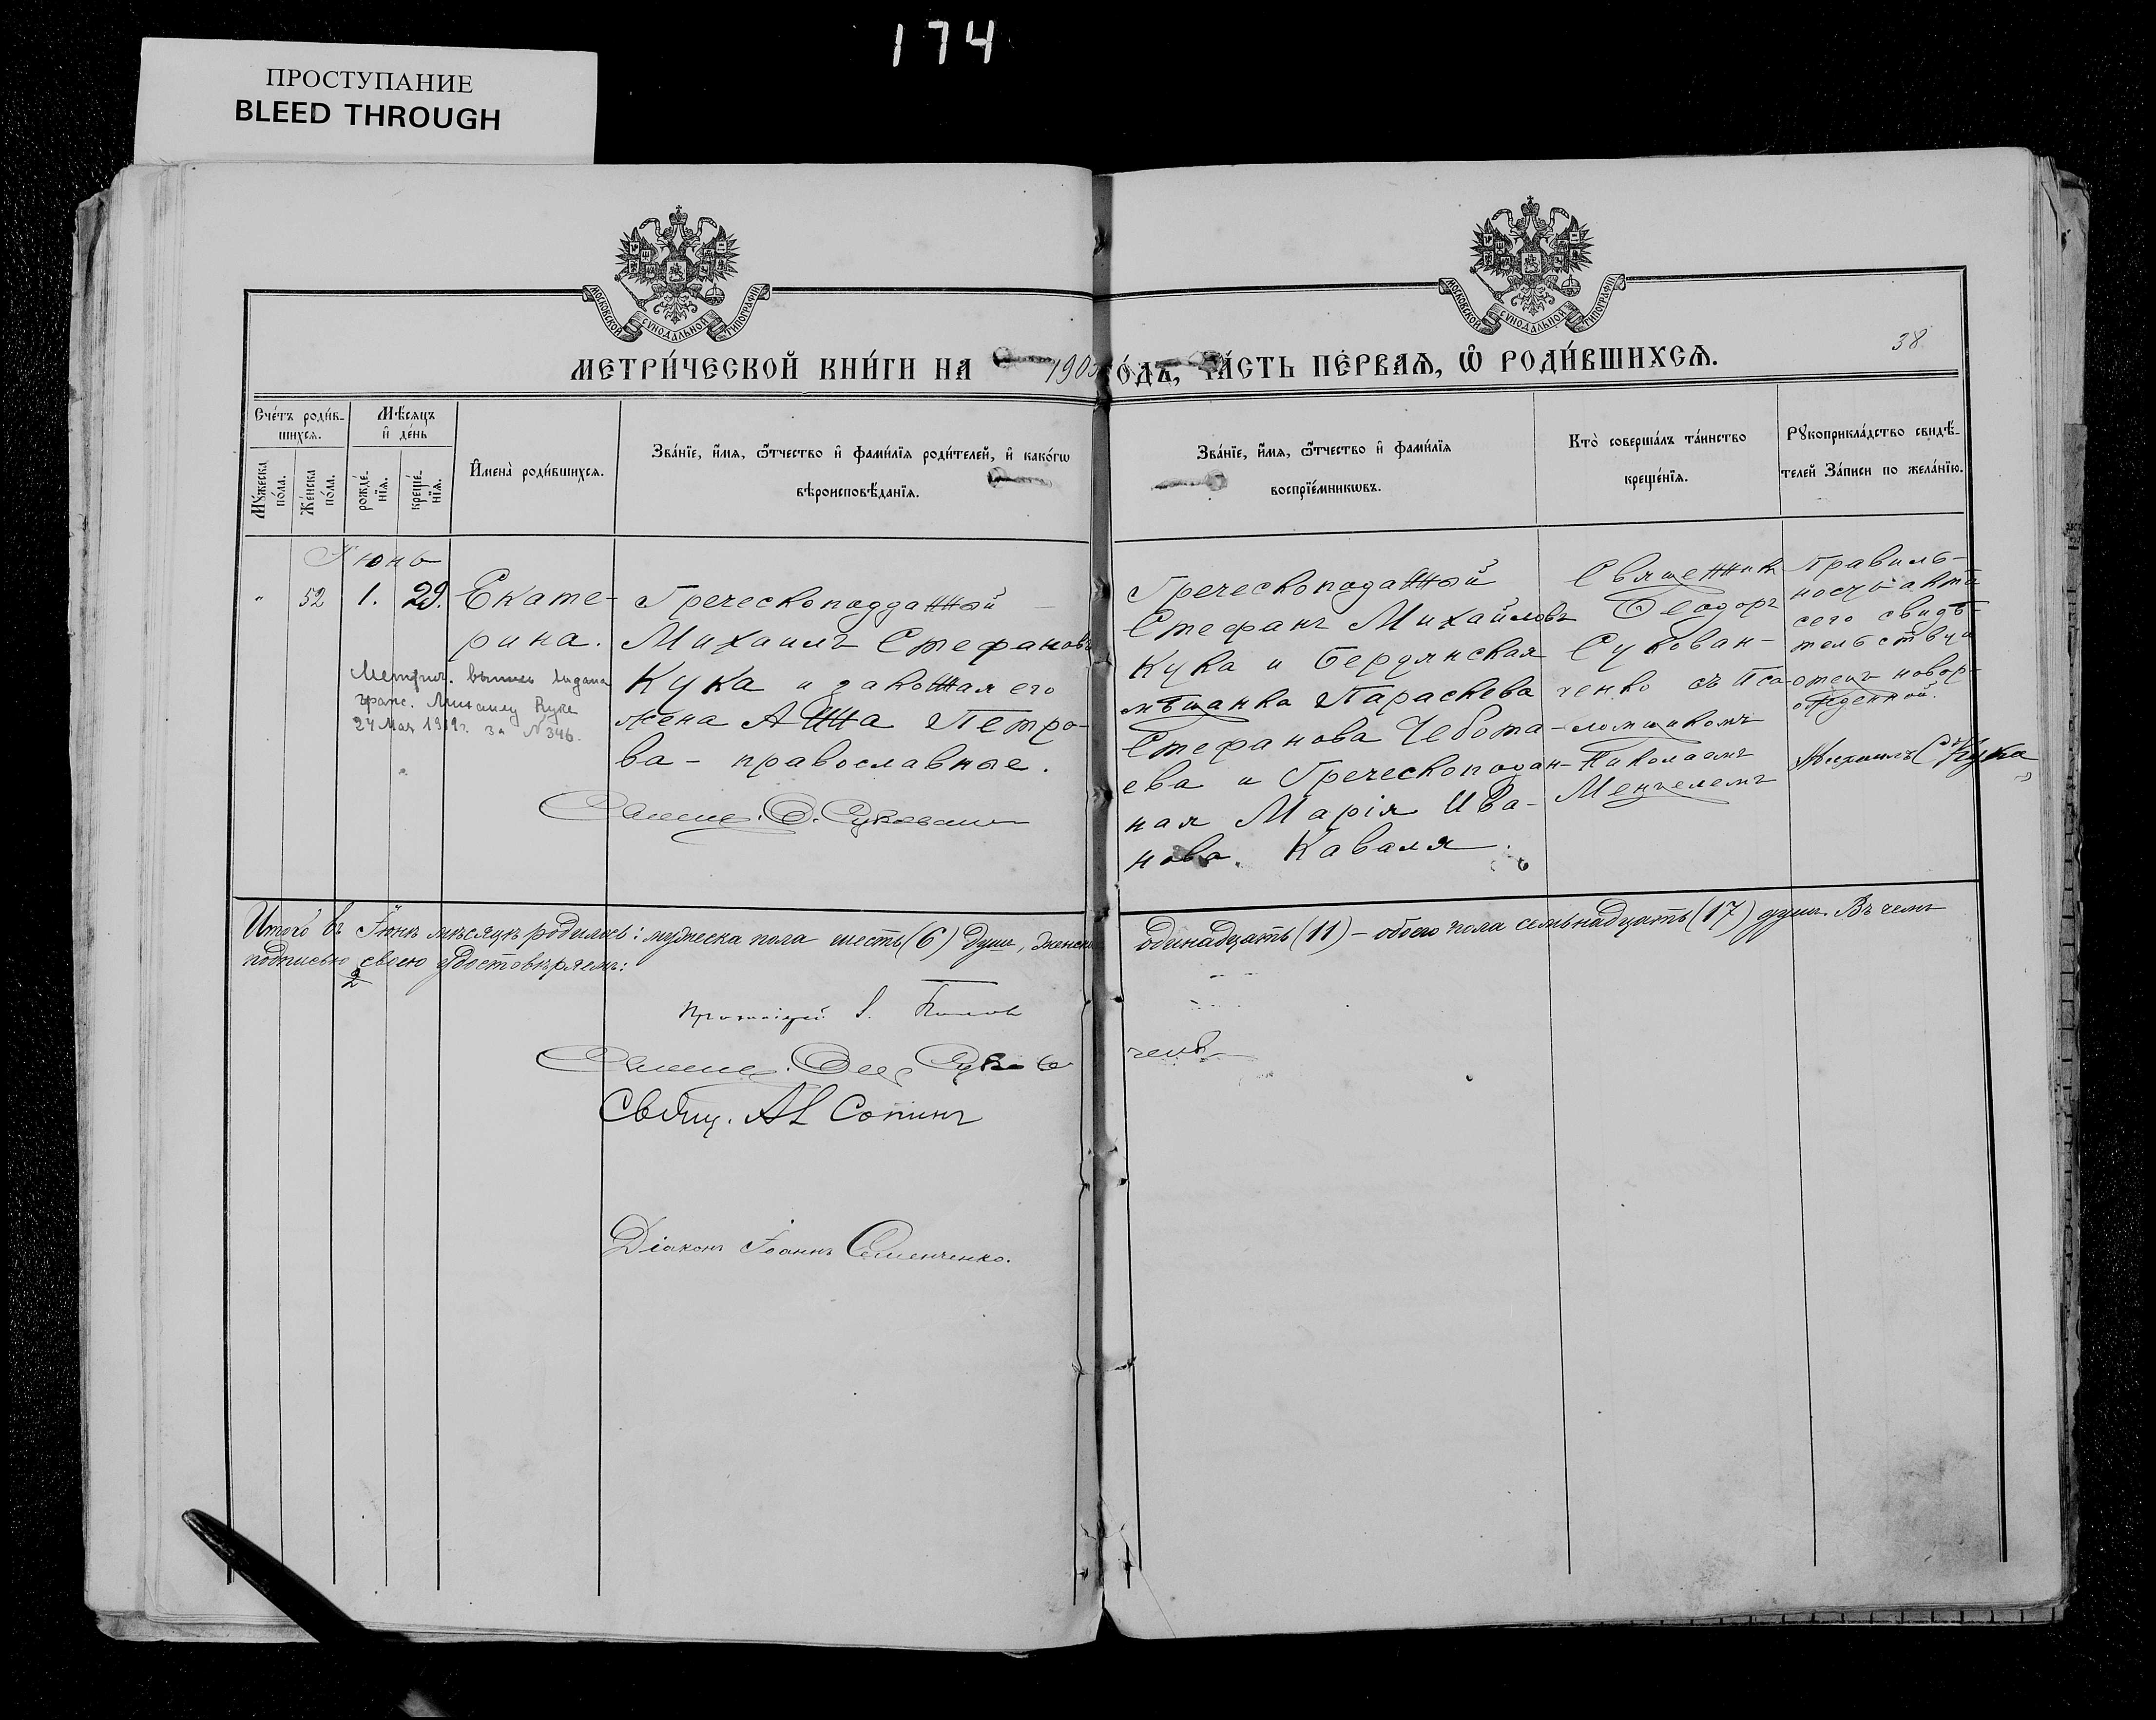 174
ПРОСТУПАНИЕ
BLEED THROUGH
МОСКОВСКОЙ СѴНОДАЛЬНОЙ ТИПОГРАФІИ
МОСКОВСКОЙ СѴНОДАЛЬНОЙ ТИПОГРАФІИ
38
МЕТРИ́ЧЕСКОЙ КНИ́ГИ НА 190 О́ДЪ, ЧА́СТЬ ПЕ́РВАЯ, Ѿ РОДИ́ВШИХСЯ.
Сче́тъ роди́в-
шихся.
Мѣ́сяцъ
и҆ де́нь
Мꙋ́жеска по́ла.
Же́нска по́ла.
рожде́-
нїя.
креще́-
нїя.
И҆мена̀ роди́вшихся.
Зва́нїе, и҆́мя, ѻ҆́тчество и҆ фами́лїя роди́телей, и҆ како́гѡ
вѣроисповѣ́данїя.
Зва́нїе, и҆́мя, ѻ҆́тчество и҆ фами́лїя
воспрїе́мникѡвъ.
Кто̀ соверша́лъ та́инство
креще́нїя.
Рꙋкоприкла́дство свидѣ́-
телей За́писи по жела́нїю.
Іюнь
" 52 1. 29. Екате-
рина.
Метрич. выпись выдана
граж. Михаилу Куке
24 Мая 1919г. за № 346.
Греческоподданный
Михаилъ Стефановъ
Кука и законная его
жена Анна Петро-
ва - православные.
Свящ. Ѳ. Сукован
Греческоподанный
Стефанъ Михайловъ
Кука и Бердянская
мѣщанка Параскева
Стефанова Чебота-
ева и Греческоподан-
ная Марія Ива-
нова. Каваля.
Священник
Ѳеодоръ
Сукован-
ченко съ Пса-
ломщикомъ
Николаемъ
Менчелемъ
Правиль-
ность акта
сего свидѣ-
тельствую
отецъ новор-
ожденной.
Михаилъ С. Кука
Итого въ Іюнѣ мѣсяцѣ родилось: мужеска пола шесть (6) душъ, женска одинадцать (11) - обоего пола семьнадцать (17) душъ. Въ чемъ
подписью своею удостовѣряемъ:
Протоіерей І. Попов
Свящ. Ѳео Суков ченко
Свящ. Ал Сопинъ
Діаконъ Іоаннъ Семенченко.